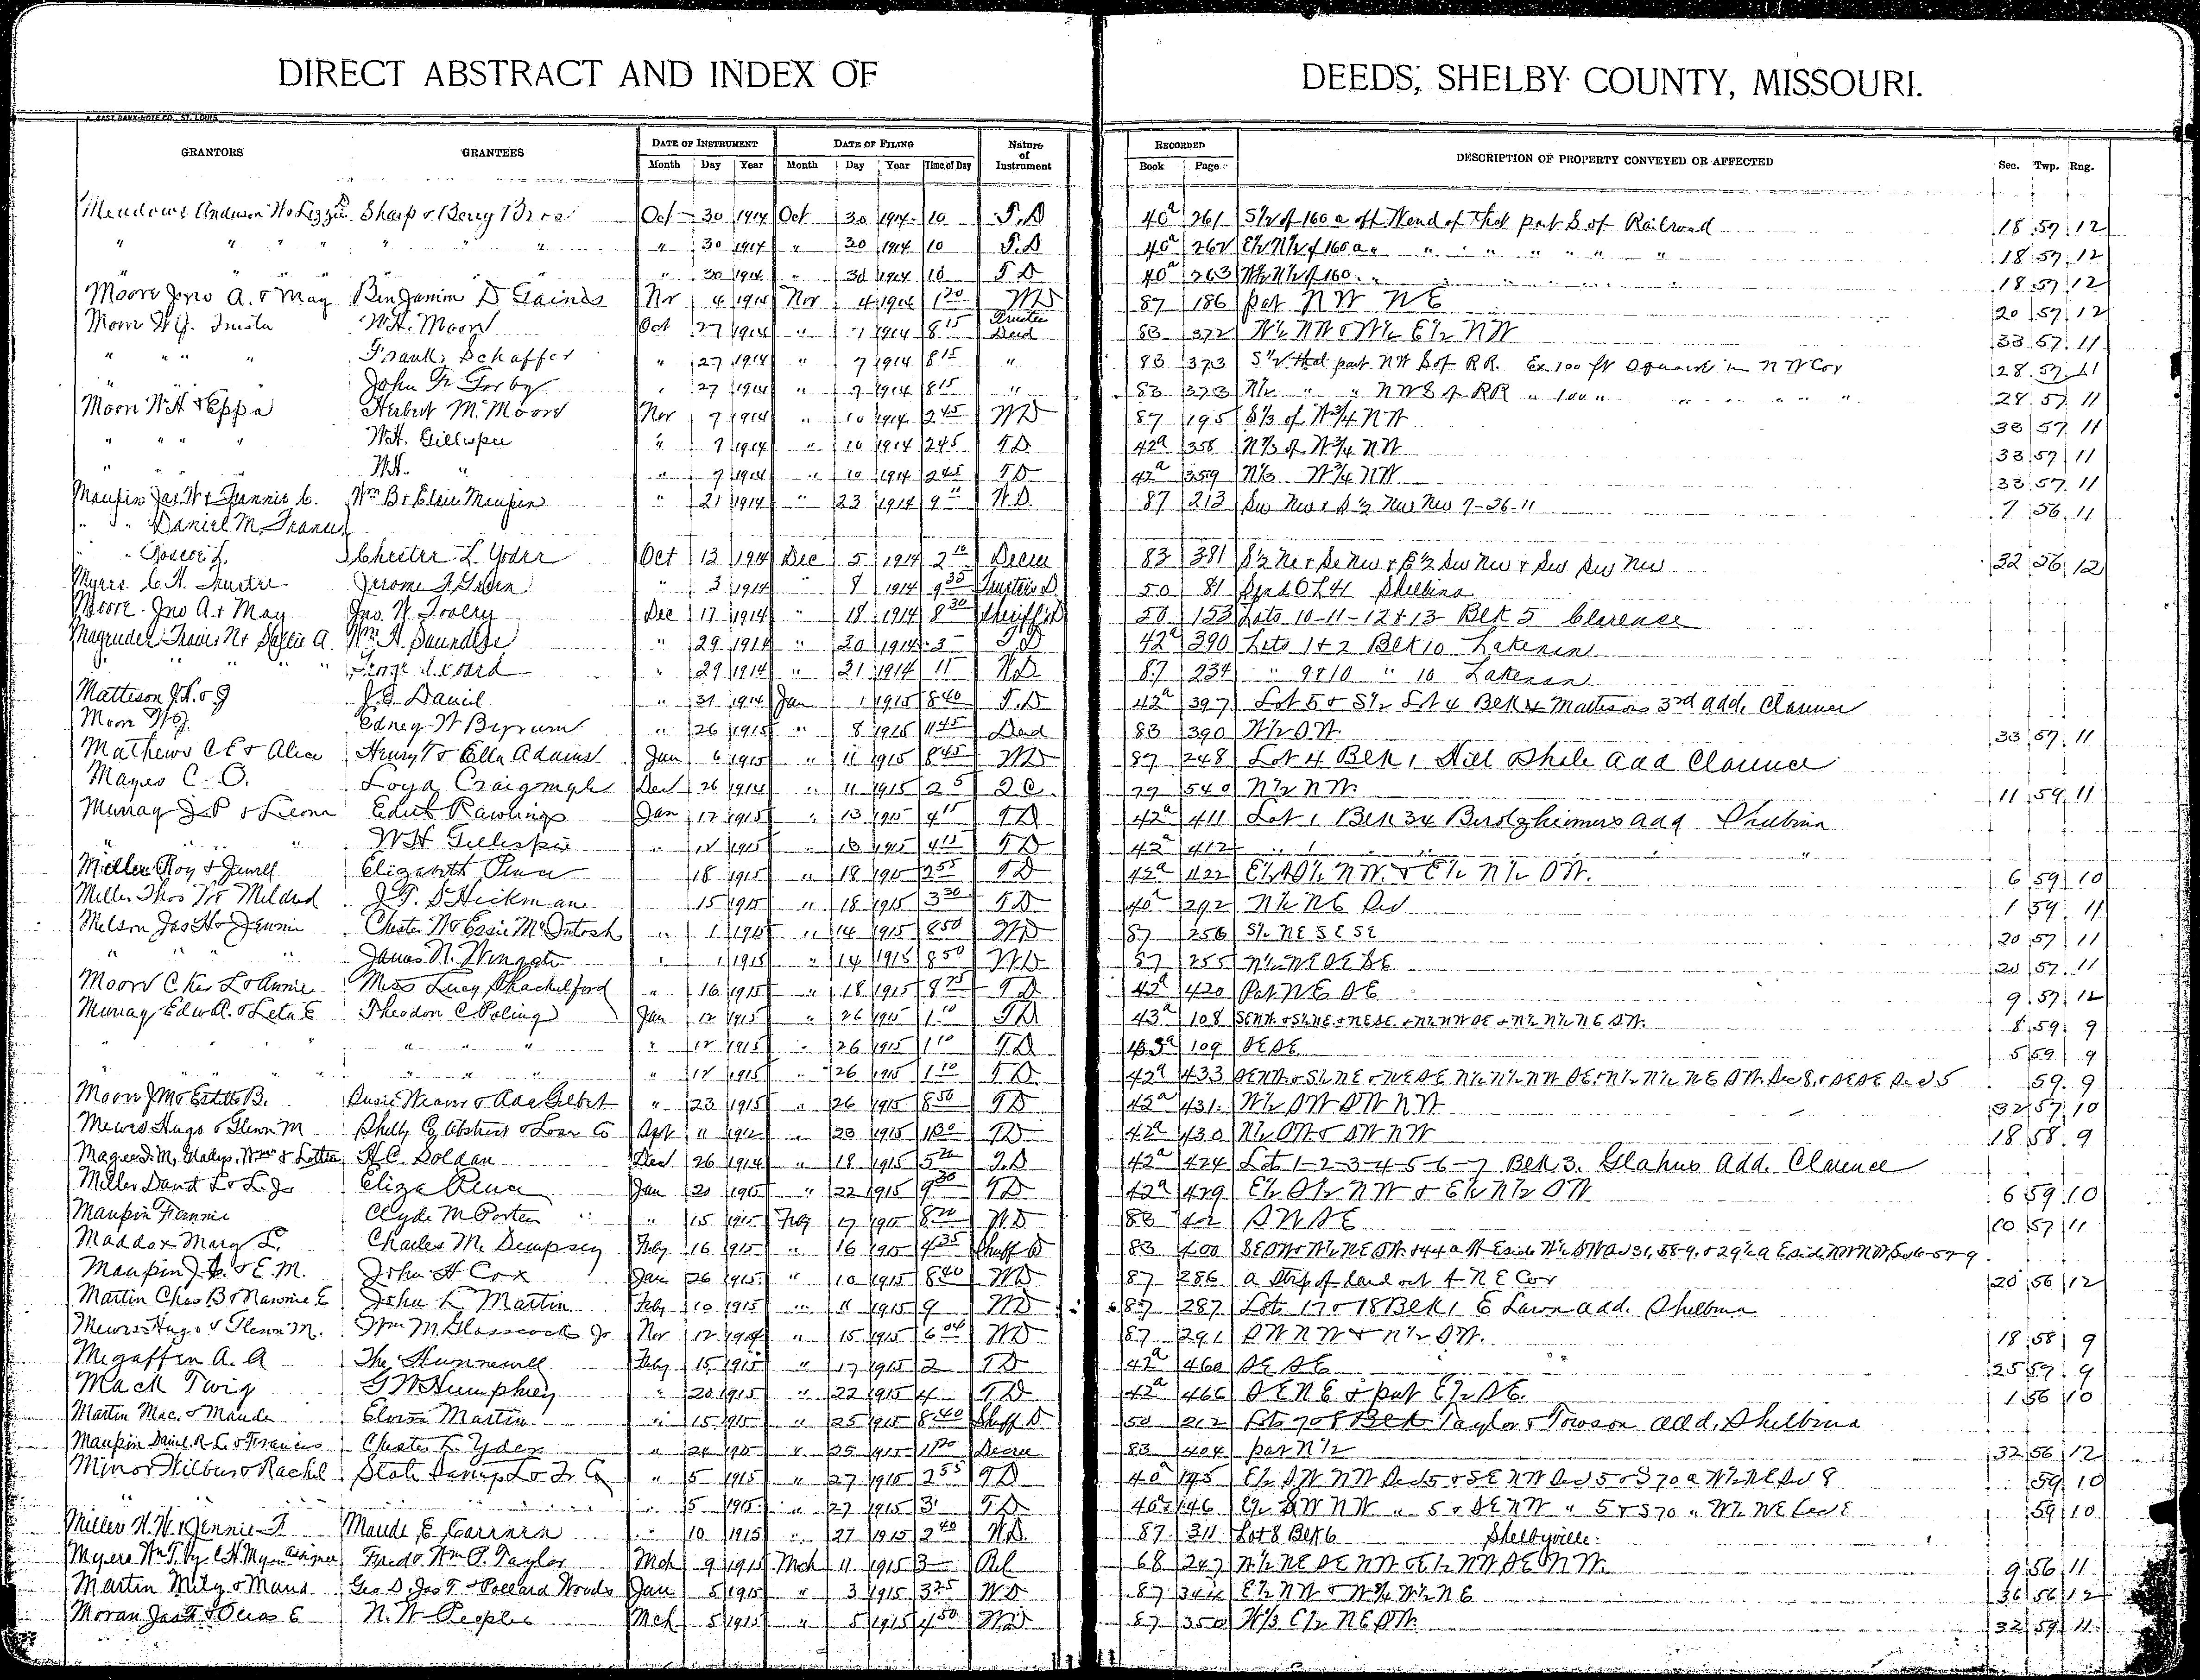 DIRECT ABSTRACT AND INDEX OF DEEDS, SHELBY COUNTY, MISSOURI.
GRANTORS GRANTEES DATE OF INSTRUMENT DATE OF FILING Nature of Instrument RECORDED DESCRIPTION OF PROPERTY CONVEYED OR AFFECTED Sec. Twp. Rng.
Month Day Year Month Day Year Time of Day Book Page
Meadows Anderson W & Lizzie Sharp & Berry Bros Oct 30 1914 Oct 30 1914 10 T.D 40a 261 S1/2 of 160 a off W end of that part S of Railroad 18 57 12
" " " " " " " 30 1914 " 30 1914 10 T.D 40a 262 E1/2 N1/2 of 160 a " " " " " " 18 57 12
" " " " " " " 30 1914 " 30 1914 10 T D 40a 263 W1/2 N1/2 of 160 " " 18 57 12
Moore Jno A. & May Benjamin D Gaines Nov 4 1914 Nov 4 1914 1 20 WD 87 186 part NW NE 20 57 12
W.H. Moore Oct 27 1914 " 7 1914 8 15 Trustee Deed 83 372 W1/2 NW & W1/2 E1/2 NW 33 57 11
" " " Frank Schaffer " 27 1914 " 7 1914 8 15 " 83 373 S1/2 that part NW S of RR. Ex 100 ft square in NW Cor 28 57 11
" " " John F. " 27 1914 " 7 1914 8 15 " 83 373 N1/2 " " NW S of RR " 100 " " " " " 28 57 11
Moore W H & Eppa Herbert M. Moore Nov 7 1914 " 10 1914 2 45 WD 87 195 S1/3 of W3/4 NW 33 57 11
" " " " W.H. Gillispie " 7 1914 " 10 1914 2 45 T.D. 42a 358 N2/3 of W3/4 NW 33 57 11
" " W.H. " " 7 1914 " 10 1914 2 45 T.D 42a 359 N2/3 W3/4 NW 33 57 11
Maupin Jas W & Fannie C. Wm B & Elsie Maupin " 21 1914 " 23 1914 9 W.D. 87 213 Sw Nw & S 1/2 Nw Nw 7-56-11 7 56 11
" " Daniel M, Francis
" " Roscoe L. Chester L. Yoder Oct 13 1914 Dec 5 1914 2 10 Decree 83 381 S1/2 Ne & Se Nw & E1/2 Sw Nw & Sw Sw Nw 32 56 12
Myers C. H. Trustee Jerome F. Green " 3 1914 " 8 1914 9 35 Trustees D 50 81 Shelbina
Moore Jno A. & May Jno. W. Towery Dec 17 1914 " 18 1914 8 30 Sheriff D 50 153 Lots 10-11-12 & 13 Blk 5 Clarence
Magruder Travis N & Sallie A. Wm. H. Saunders " 29 1914 " 30 1914 3 T.D 42a 390 Lots 1 & 2 Blk 10 Lakenan
" " " " George " 29 1914 " 31 1914 11 W.D 87 234 " 9 & 10 " 10 Lakenan
Mattison J.N. & J J. E. Daniel " 31 1914 Jan 1 1915 8 40 T.D 42a 397 Lot 5 & S1/2 Lot 4 Blk 4 Mattisons 3rd add. Clarence
Moore W.J. Edney W Byrum " 26 1915 " 8 1915 11 45 Deed 83 390 W1/2 SW 33 57 11
Mathews C E & Alice Henry T & Ella Adams Jan 6 1915 " 11 1915 8 45 WD 87 248 Lot 4 Blk 1 Hill Shale add Clarence
Mayes C. O. Loyd Craigmyle Dec 26 1914 " 11 1915 2 5 Q C. 79 540 N1/2 NW. 11 59 11
Murray J P & Leona Edith Rawlings Jan 12 1915 " 13 1915 4 15 T D 42a 411 Lot 1 Blk 34 Burdzheimers add Shelbina
" " " W H Gillispie " 12 1915 " 13 1915 4 15 T D 42a 412 " 1 " " "
Miller Roy & Jewell Elizabeth Pence 18 1915 " 18 1915 2 55 T D 42a 422 E1/2 S1/2 NW. & E1/2 N1/2 SW. 6 59 10
Miller Thos W & Mildred J. T. S Hickman 15 1915 " 18 1915 3 30 T D 40a 292 N1/2 NE 1 59 11
Melson Jas H & Jennie Chester N & Essie McIntosh " 1 1915 " 14 1915 8 50 WD 87 256 S1/2 NE SE SE 20 57 11
" " " James N. Wingate " 1 1915 " 14 1915 8 50 WD 87 255 N1/2 NE SE SE 20 57 11
Moore Chas L & Annie Miss Lucy Shackelford " 16 1915 " 18 1915 8 25 T D 42a 420 Pat NE SE 9 57 12
Murray Edw R. & Leta E Theodore C Poling Jan 12 1915 " 26 1915 1 10 T D 43a 108 SENW & S1/2 NE & NESE & N1/2 NW SE & N1/2 N1/2 NE SW. 8 59 9
" " " " " " " 12 1915 " 26 1915 1 10 T D 43a 109 SE SE 5 59 9
" " " " " " " 12 1915 " 26 1915 1 10 T D. 42a 433 SENW & S1/2 NE & NE SE N1/2 N1/2 NW SE & N1/2 N1/2 NE SW Sec 8, & SE SE Sec 5 59 9
Moore J M & Estella B. Susie Weaver & Ada Gilbert " 23 1915 " 26 1915 8 50 T D 42a 431 W1/2 SW SW NW 32 57 10
Mewes Hugo & Glenn M Shelby Co Abstract & Loan Co Apr 11 1912 " 23 1915 1 30 T D 42a 430 N1/2 SW & SW NW 18 58 9
Magee D. M, Gladys, Wm & Lottie H. C. Soldan Dec 26 1914 " 18 1915 5 20 T.D 42a 424 Lots 1-2-3-4-5-6-7 Blk 3. Glahns Add. Clarence
Miller David L & L. J. Eliza Pence Jan 20 1915 " 22 1915 9 30 T D 42a 429 E1/2 S1/2 NW & E1/2 N1/2 SW 6 59 10
Maupin Fannie Clyde M Porter " 15 1915 Feby 17 1915 8 20 W D 88 42 SW SE 10 57 11
Maddox Mary L. Charles M. Dempsey Feby 16 1915 " 16 1915 4 35 Sheff D 83 400 SESW & W1/2 NE SW & 44 a W E side W1/2 SW Sec 31, 58-9. & 29 1/2 a E side NW NW Sec 6-57-9
Maupin J. D. & E. M. John H Cox Jan 26 1915 " 10 1915 8 40 WD 87 286 a strip of land out of N E Cor 20 56 12
Martin Chas B & Nawonie E John L Martin Feby 10 1915 " 11 1915 9 WD 87 287 Lots 17 & 18 Blk 1 E Lawn add. Shelbina
Mewes Hugo & Glenn M. Wm M Glasscock Jr Nov 12 1914 " 15 1915 6 04 WD 87 291 SW NW & N1/2 SW. 18 58 9
Megaffin A. A The Hunnewell Feby 15 1915 " 17 1915 2 T D 42a 460 SE SE 25 57 9
Mack Twig G W Humphrey " 20 1915 " 22 1915 4 T D 42a 466 SE NE & part E1/2 SE. 1 56 10
Martin Mac. & Maude Eloise Martin " 15 1915 " 25 1915 8 40 Sheff D 50 212 Lots 7 & 8 Blk Taylor & Towson add. Shelbina
Maupin Daniel R. L & Francis Chester L Yoder " 24 1915 " 25 1915 1 20 Decree 83 404 part N1/2 32 56 12
Minor Wilbur & Rachel State Savings Lo Tr. Co " 5 1915 " 27 1915 2 55 T D 40a 145 E1/2 SW NW Sec 5 & SE NW Sec 5 & S 70 a W1/2 NE Sec 8 59 10
" " " 5 1915 " 27 1915 3 T D 40a 146 E1/2 SW NW " 5 & SE NW " 5 & S 70 " W1/2 NE Sec 8 59 10
Miller W. W. & Jennie F Maude E " 10 1915 " 27 1915 2 40 W.D. 87 311 Lot 8 Blk 6 Shelbyville
Myers Wm T. by C. H. Myers assignee Fred & Wm P. Taylor Mch 9 1915 Mch 11 1915 3 Rel 68 247 N1/2 NE SE NW & E1/2 NW SE NW. 9 56 11
Martin Mily & Maud Geo D Jas T & Pollard Woods Jan 5 1915 " 3 1915 3 25 WD 87 344 E1/2 NW & W3/4 W1/2 NE 36 56 12
Moran Jas F & Ocas E N. W Peoples Mch 5 1915 " 5 1915 4 50 WD 87 350 W1/3 E1/2 NE SW. 32 59 11